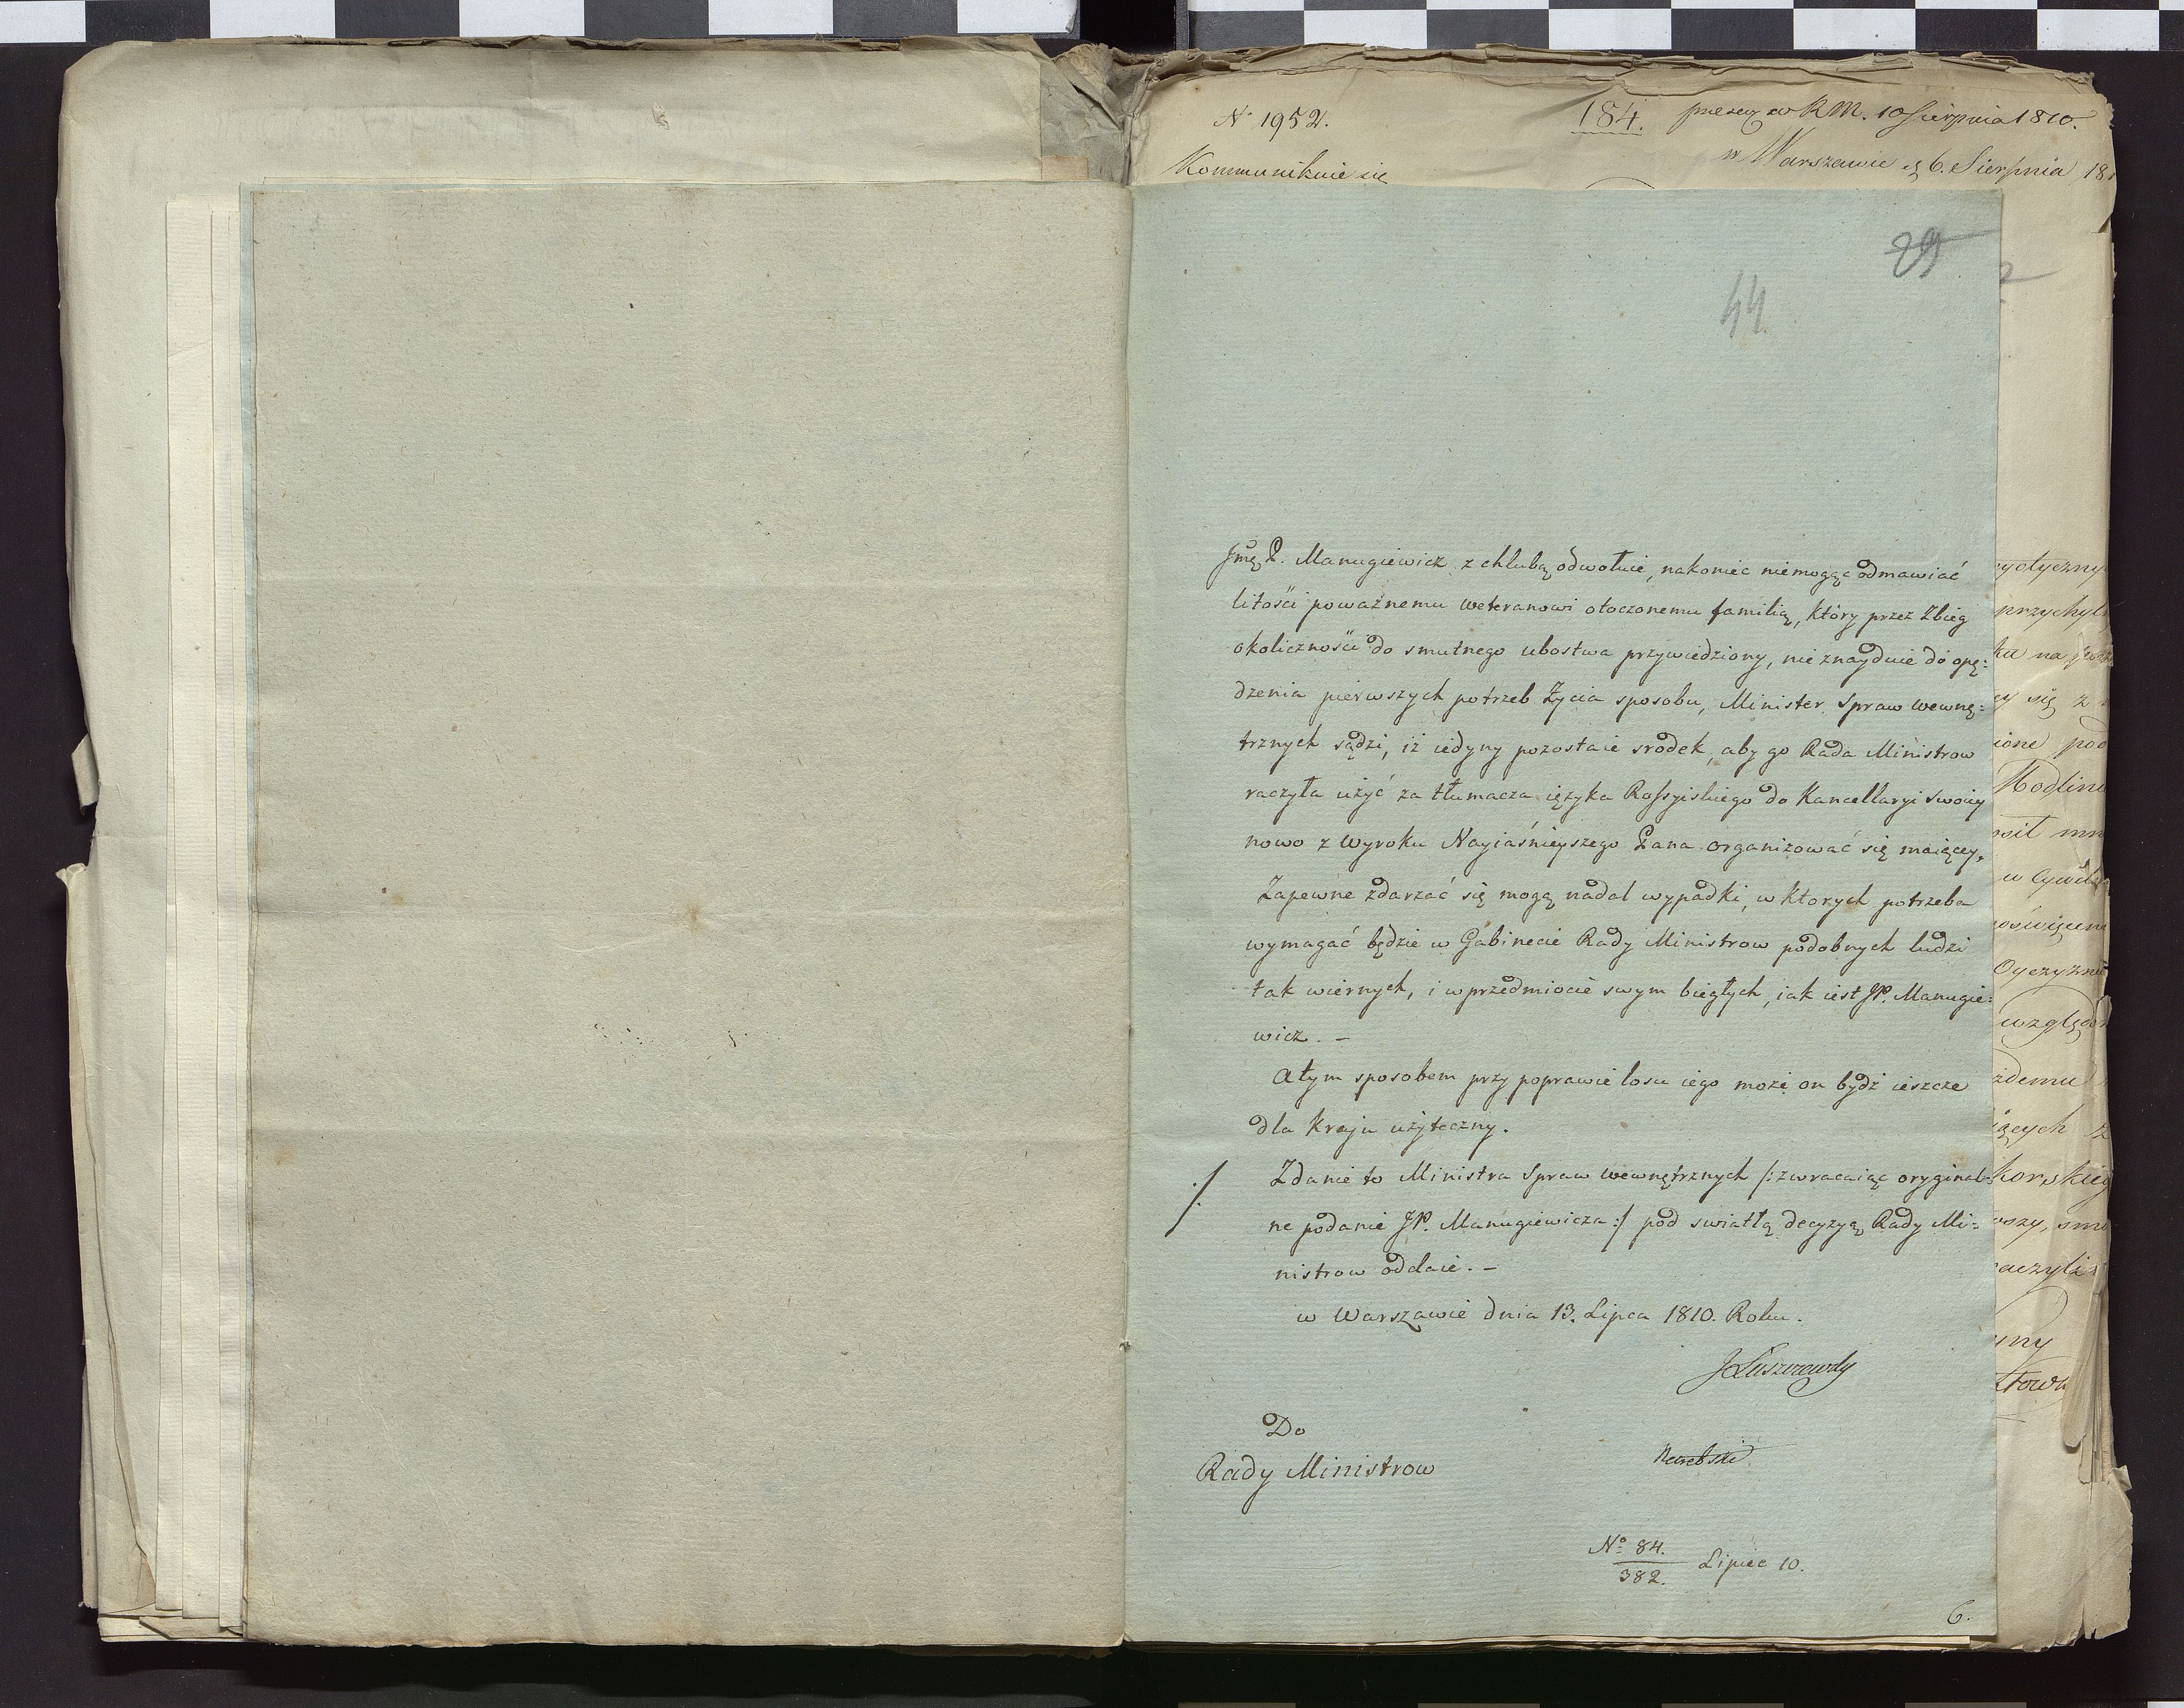 N. 1952.
184.
presen: w R M. 10 Sierpnia 1810.
w Warszawie d. 6. Sierpnia 181
Kommunikuie się
29
44
Jmę P. Manugiewicz z chlubą odwołuie, nakoniec niemogąc odmawiać
litości poważnemu weteranowi otoczonemu familią, który przez zbieg
okoliczności do smutnego ubostwa przywiedziony, nie znayduie do opę:
dzenia pierwszych potrzeb życia sposobu, Minister Spraw wewnę:
trznych sądzi, iż iedyny pozostaie srodek, aby go Rada Ministrow
raczyła użyć za tłumacza ięzyka Rossyiskiego do Kancellaryi swoiey
nowo z wyroku Nayiaśnieyszego Pana organizować się maiącey.
Zapewne zdarzać się mogą nadal wypadki, w ktorych potrzeba
wymagać będzie w Gabinecie Rady Ministrow podobnych ludzi
tak wiernych, i w przedmiocie swym biegłych, iak iest JP. Manugie:
wicz. –
A tym sposobem przy poprawie losu iego może on bydź ieszcze
dla Kraju użyteczny.
Zdanie to Ministra Spraw wewnętrznych /: zwracaiąc oryginal:
ne podanie JP. Manugiewicza :/ pod swiatłą decyzyą Rady Mi:
nistrow oddaie. –
w Warszawie dnia 13. Lipca 1810. Roku.
JŁuszczewsky
Do
Rady Ministrow
No 84.
382.
Lipiec 10.
6.
rydyczny
przychyl
ka na
ey się z
ione pod
Modlin
osił mn
w Cywil
oświęcen
Oyczyzni
względ
żdemu
iących
korskieg
wszy, sm
aczyli
ny